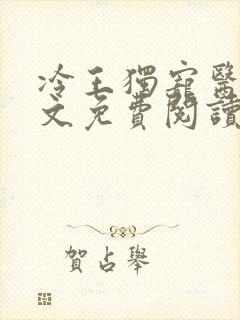 冷王獨寵醫
文免費閱讀
賀占舉